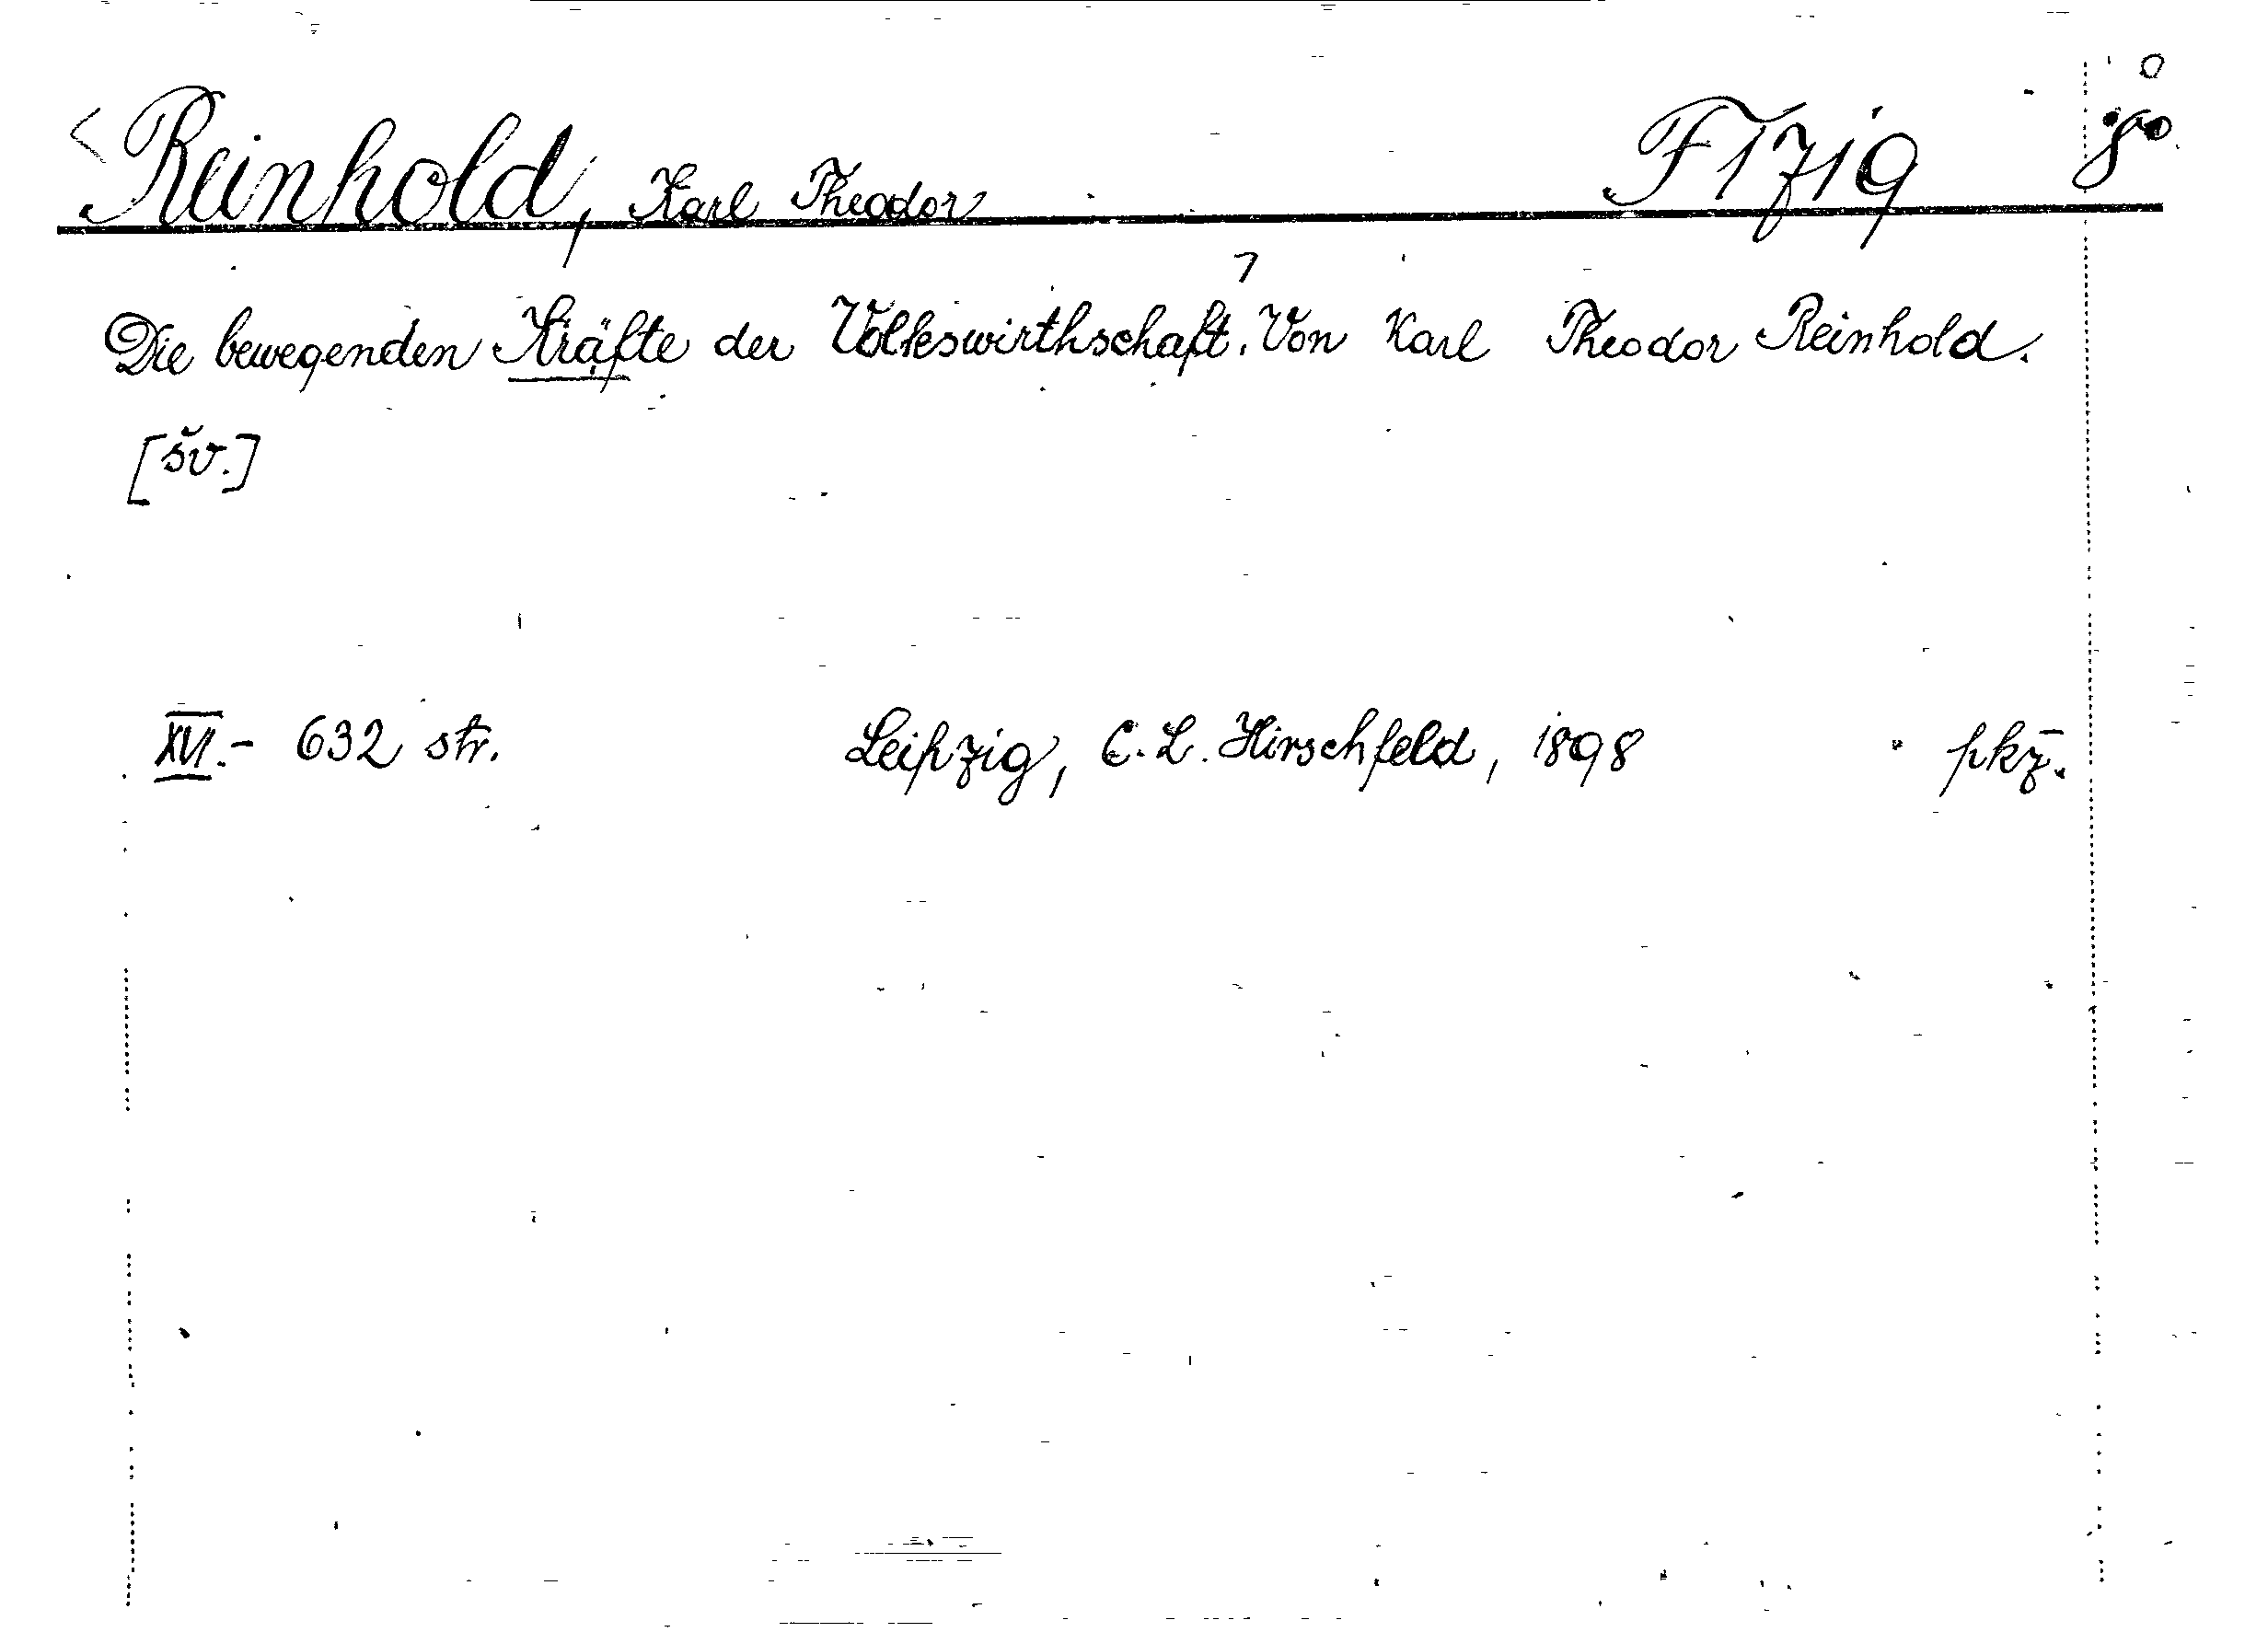 Reinhold, Karl Theodor F 1719 8°
Die bewegenden Kräfte der Volkswirthschaft. Von Karl Theodor Reinhold.
[šv.]
XVI.- 632 str. Leipzig, C. L. Hirschfeld, 1898 pkz.